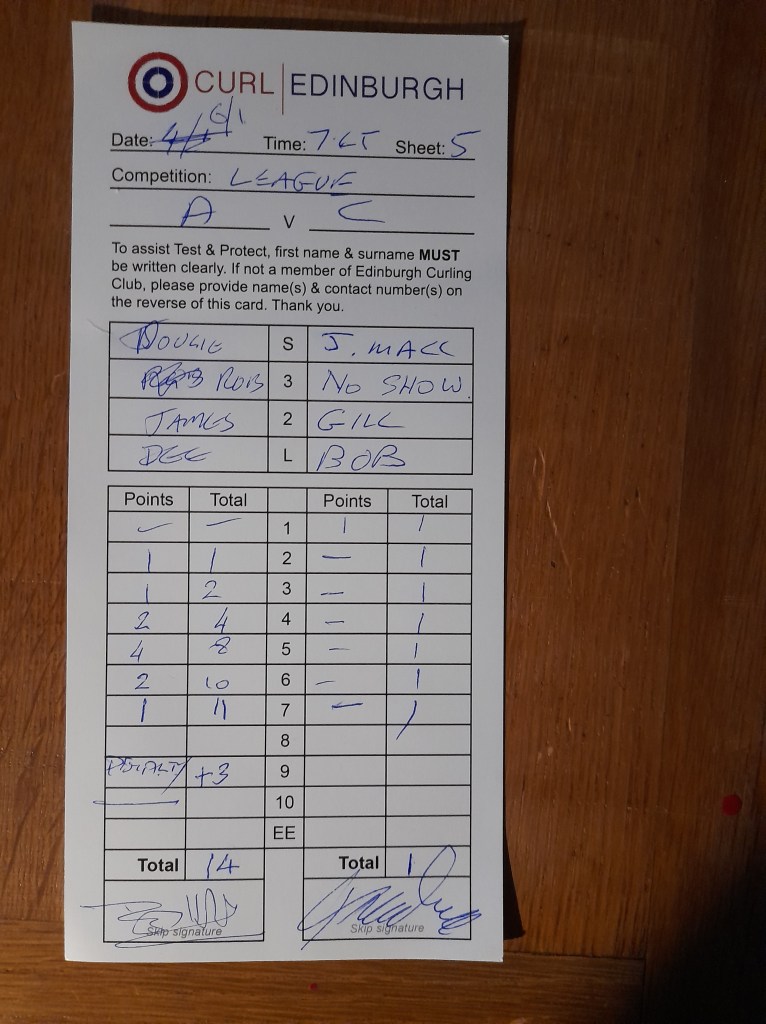 CURL EDINBURGH
6/1
Date: 4/1 Time: 7.45 Sheet: 5
Competition: LEAGUE
A V C
To assist Test & Protect, first name & surname MUST
be written clearly. If not a member of Edinburgh Curling
Club, please provide name(s) & contact number(s) on
the reverse of this card. Thank you.
DOUGIE S J. MACC
ROB 3 NO SHOW.
JAMES 2 GILL
DEE L BOB
Points Total Points Total
– – 1 1 1
1 1 2 – 1
1 2 3 – 1
2 4 4 – 1
4 8 5 – 1
2 10 6 – 1
1 11 7 – 1
8
PENALTY +3 9
10
EE
Total 14 Total 1
Skip signature Skip signature